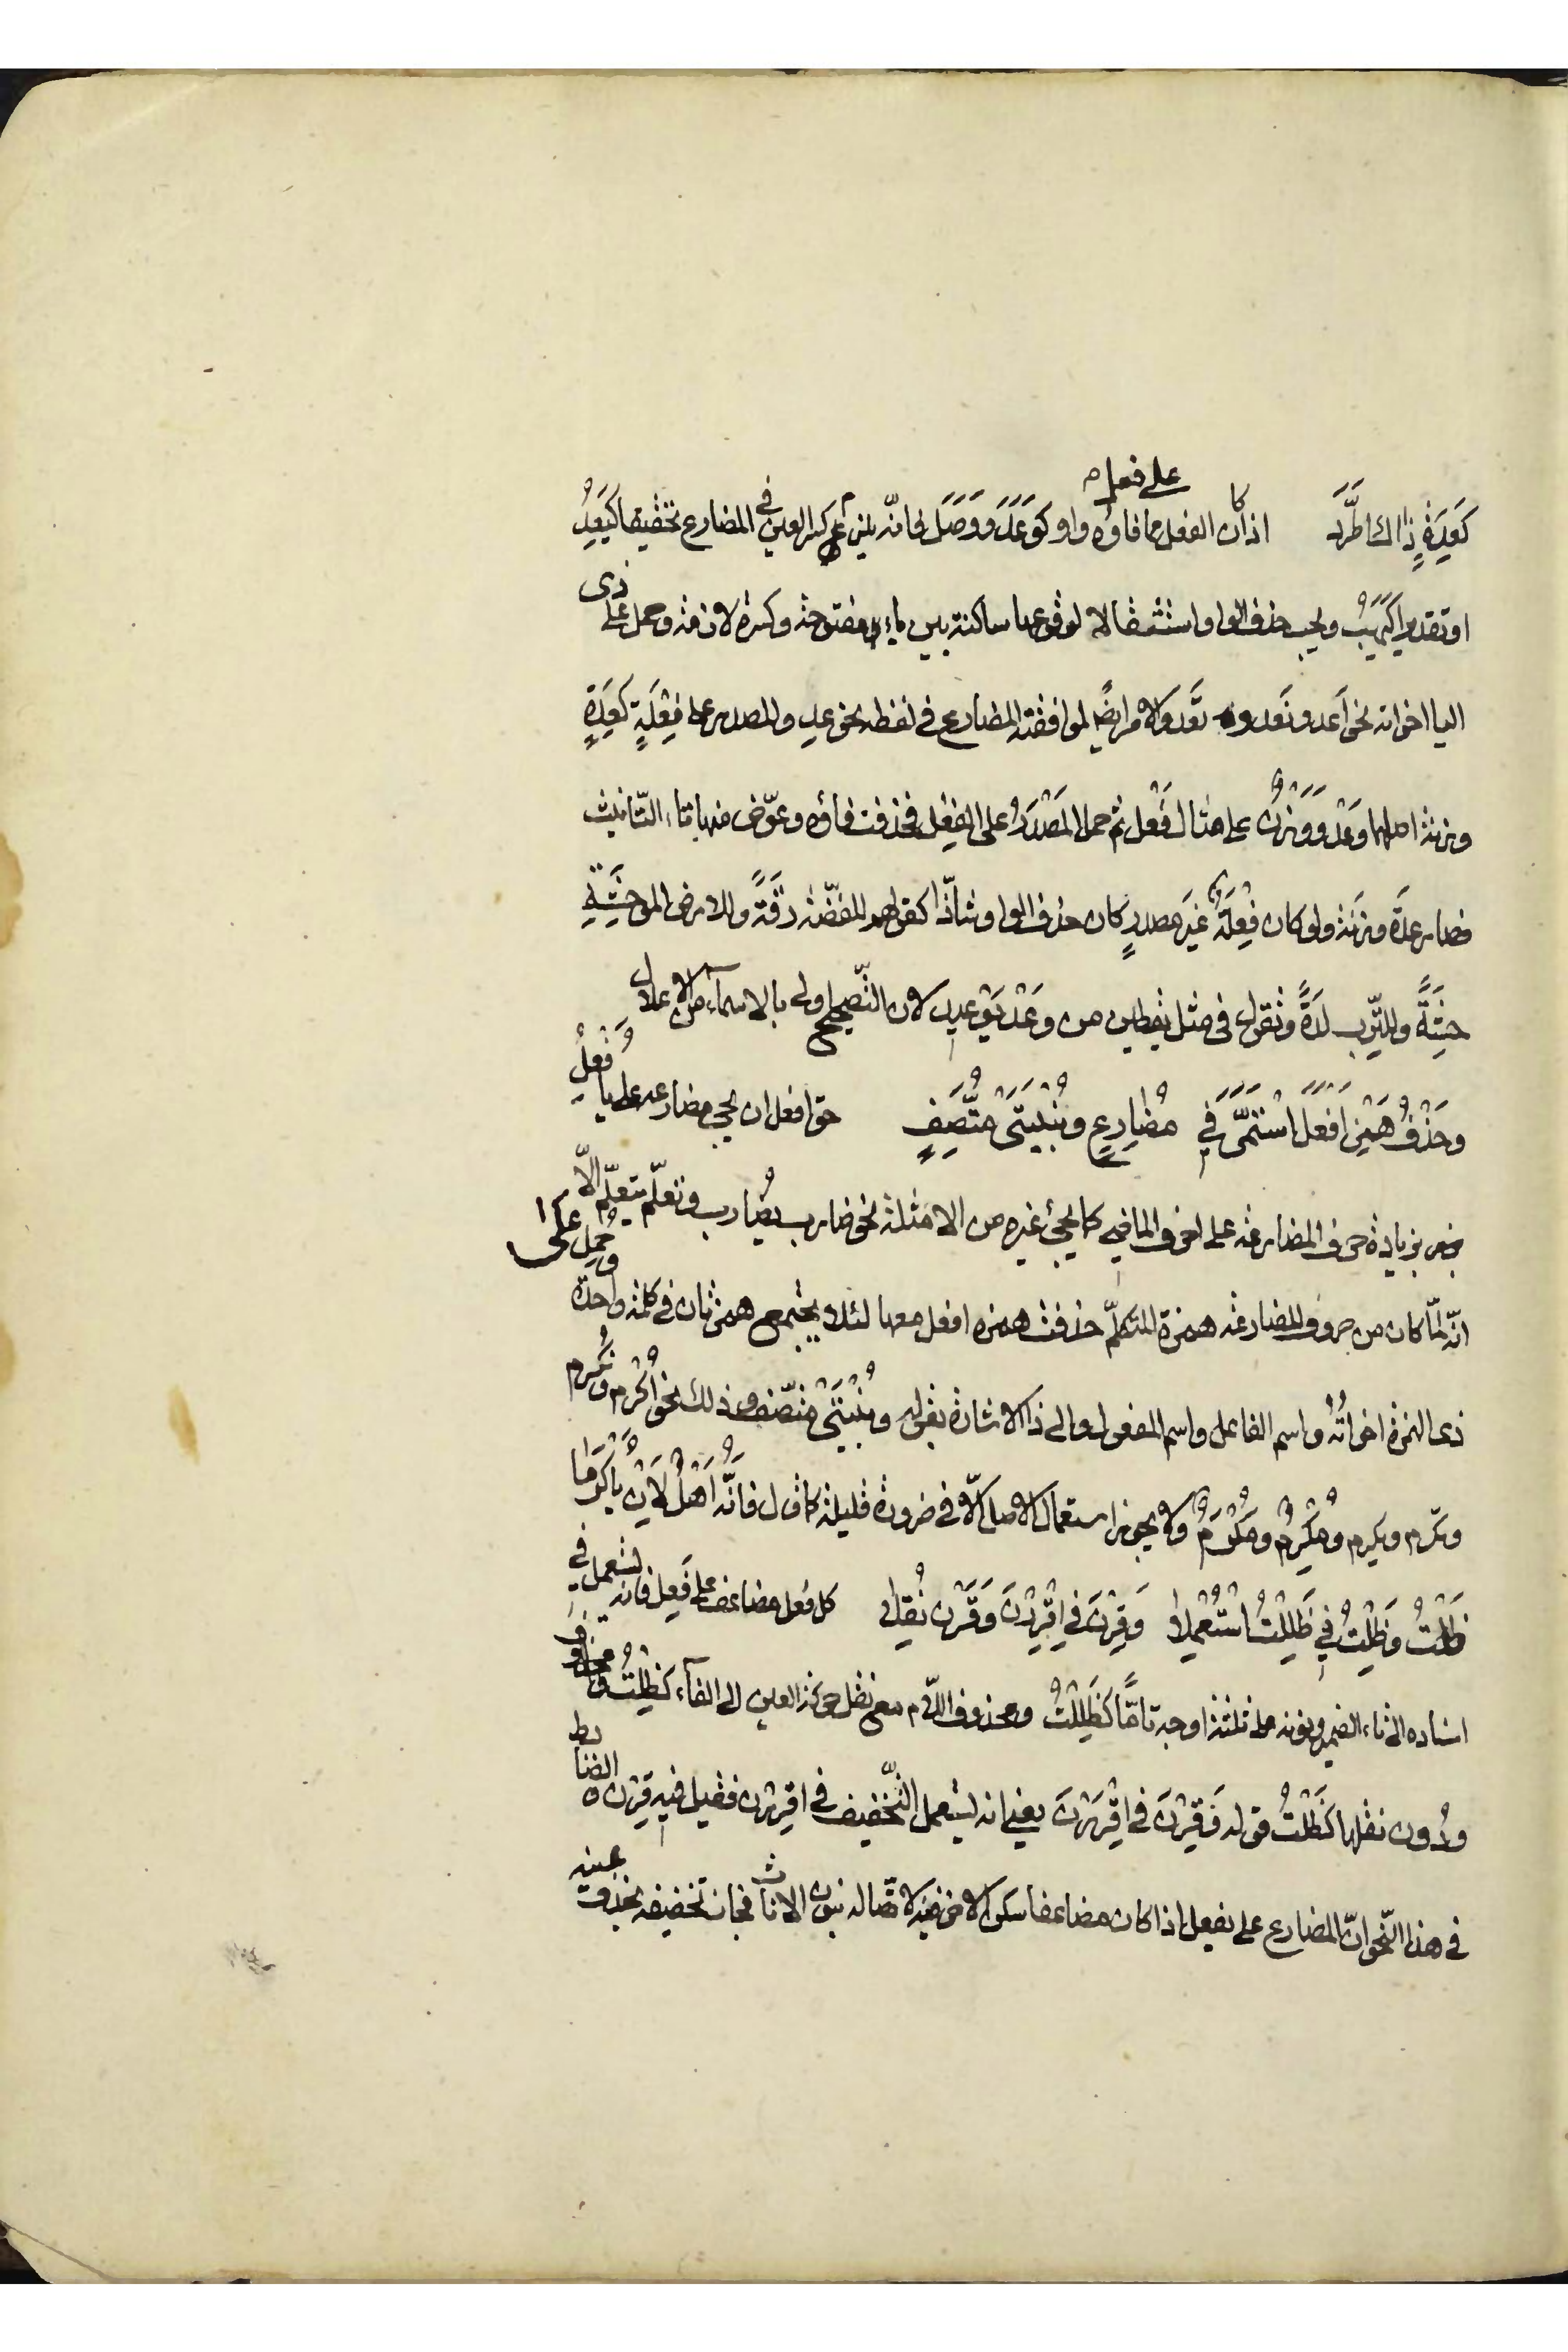 كَعِدَةٍ ذَاكَ اطَّرَد اذا كان الفعل على فعل مما فاؤه واو كوَعَدَ ووَصَل فانّه يلزم كسر العين في المضارع تخفيفا كيَعِدُ
او تقديرا كيَهَبُ ويجب حذف الواو استثقالا لوقوعها ساكنة بين ياء مفتوحة وكسرة لازمة وحمل على ذى
اليا اخواته نحو اَعد ونَعد و تَعد والامر ايضًا لموافقته المضارع في لفظه نحو عد والمصدر على فِعْلَةٍ كعِدَةٍ
وزنة اصلهما وَعْدٌ ووَزْنٌ على مثال فَعْل ثم حمل المَصْدَرُ على الفِعْل فحذفت فاؤه وعوّض منها تاء التّانيث
فصار عِدَة وزِنَة ولو كان فِعْلَةٌ غيَر مصدرٍ كان حذف الواو شاذّا كقولهم للفضّة رِقَةً وللارض الموحشَةِ
حِشَةً وللتِّرب لِدَةً وتقول في مثل يقطين من وَعَدَ يَوْعِيد لان التّصحيح اولى بالاسماء من الاعلال
وحَذْفُ هَمْزِ اَفْعَلَ اسْتَمَرَّ فِي مُضَارِعٍ وبُنْيَتَيْ مُتَّصِفٍ حق افعل ان يجي مضارعه على يؤَفْعِلُ
بزيادة حرف المضارعة على احرف الماضي كما يجئ غيره من الامثلة نحو ضارب يُضارب وتعلّم يتعلّم الّا
انّه لمّا كان من حروف المضارعة همزة المتكلّم حذفت همزه افعل معها لئلا يجتمع همزتان في كلمة واحدة وحُمِلَ على
ذى الهمزة اخواتُهُ واسم الفاعل واسم المفعول والى ذا الاشارة بقوله وبُنْيَتَيْ متّصف وذلك نحو اُكْرم ونُكرم
وتكرم ويكرم ومُكْرِمٌ ومُكْرَمٌ ولا يجوز استعمال الاصل الّا في ضرورة قليلة كما قال فَانَّهُ اَهْلٌ لِاَنْ يُؤَكْرَمَا
ظَلْتُ وَظِلْتُ فِي ظَلِلْتُ اسْتُعْمِلَا وَقِرْنَ فِي اِقْرِرْنَ وَقَرْنَ نُقِلَا كل فعل مضاعف على فَعِل فانه يستعمل في
اسناده الى تاء الضمير ونونه على ثلثة اوجه تامًّا كظَلِلْتُ ومحذوف اللّام مع نقل حركة العين الى الفآء كظِلْتُ ومحذوف
ودُون نقلها كظَلْتُ قوله وَقِرْنَ في اِقْرِرْنَ يعنى انه يستعمل التّخفيف في اقرِرْن فقيل فيه قِرْنَ والضابط
في هذا النّحو انّ المضارع على يفعل اذا كان مضاعفا سكن الاخر منه لاتّصاله بنون الاناث فجاز تخفيفه بحذف عينه